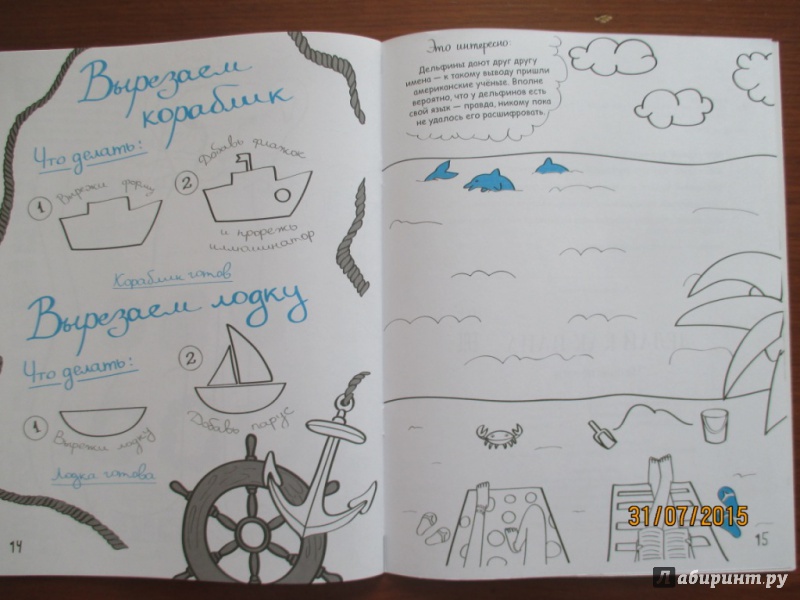 Вырезаем
кораблик
Что делать:
1 Вырежи форму
2 Добавь флажок
и прорежь
иллюминатор
Кораблик готов
Вырезаем лодку
Что делать:
1 Вырежи лодку
2
Добавь парус
Лодка готова
14
Это интересно
Дельфины дают друг другу
имена — к такому выводу пришли
американские учёные. Вполне
вероятно, что у дельфинов есть
свой язык — правда, никому пока
не удалось его расшифровать.
15
31/07/2015
Лабиринт.ру